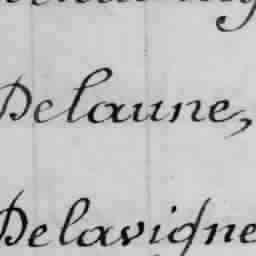 Delaune,
Delavigne